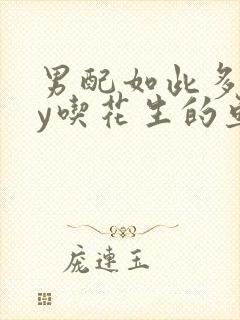 男配如此多
y喫花生的
庞連玉